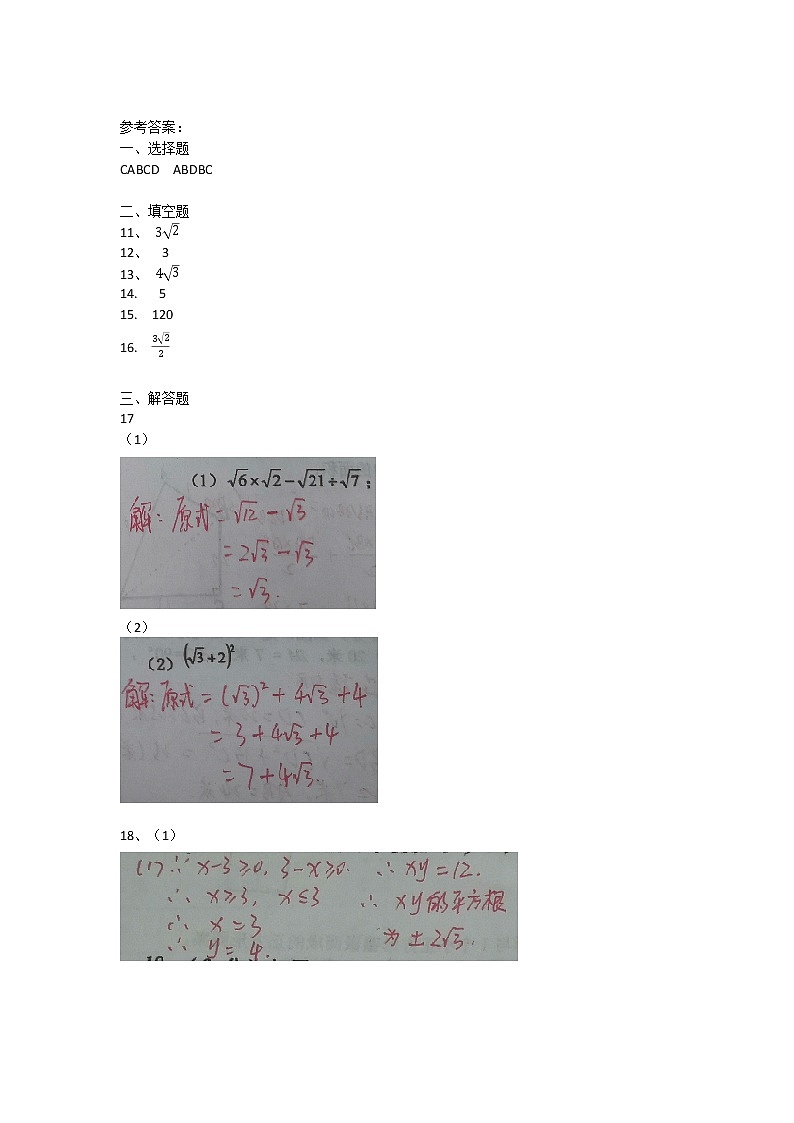 参考答案：
一、选择题
CABCD ABDBC
二、填空题
11、 3√2
12、 3
13、 4√3
14. 5
15. 120
16. 3√2/2
三、解答题
17
（1）
（1）√6×√2－√21÷√7；
解：原式＝√12－√3
＝2√3－√3
＝√3.
（2）
（2）(√3+2)²
解：原式＝(√3)²＋4√3＋4
＝3＋4√3＋4
＝7＋4√3.
18、（1）
(1)∵x-3≥0, 3-x≥0.
∴ x≥3, x≤3
∴ x=3
∴ y=4.
∴ xy=12.
∴ xy的平方根
为±2√3.